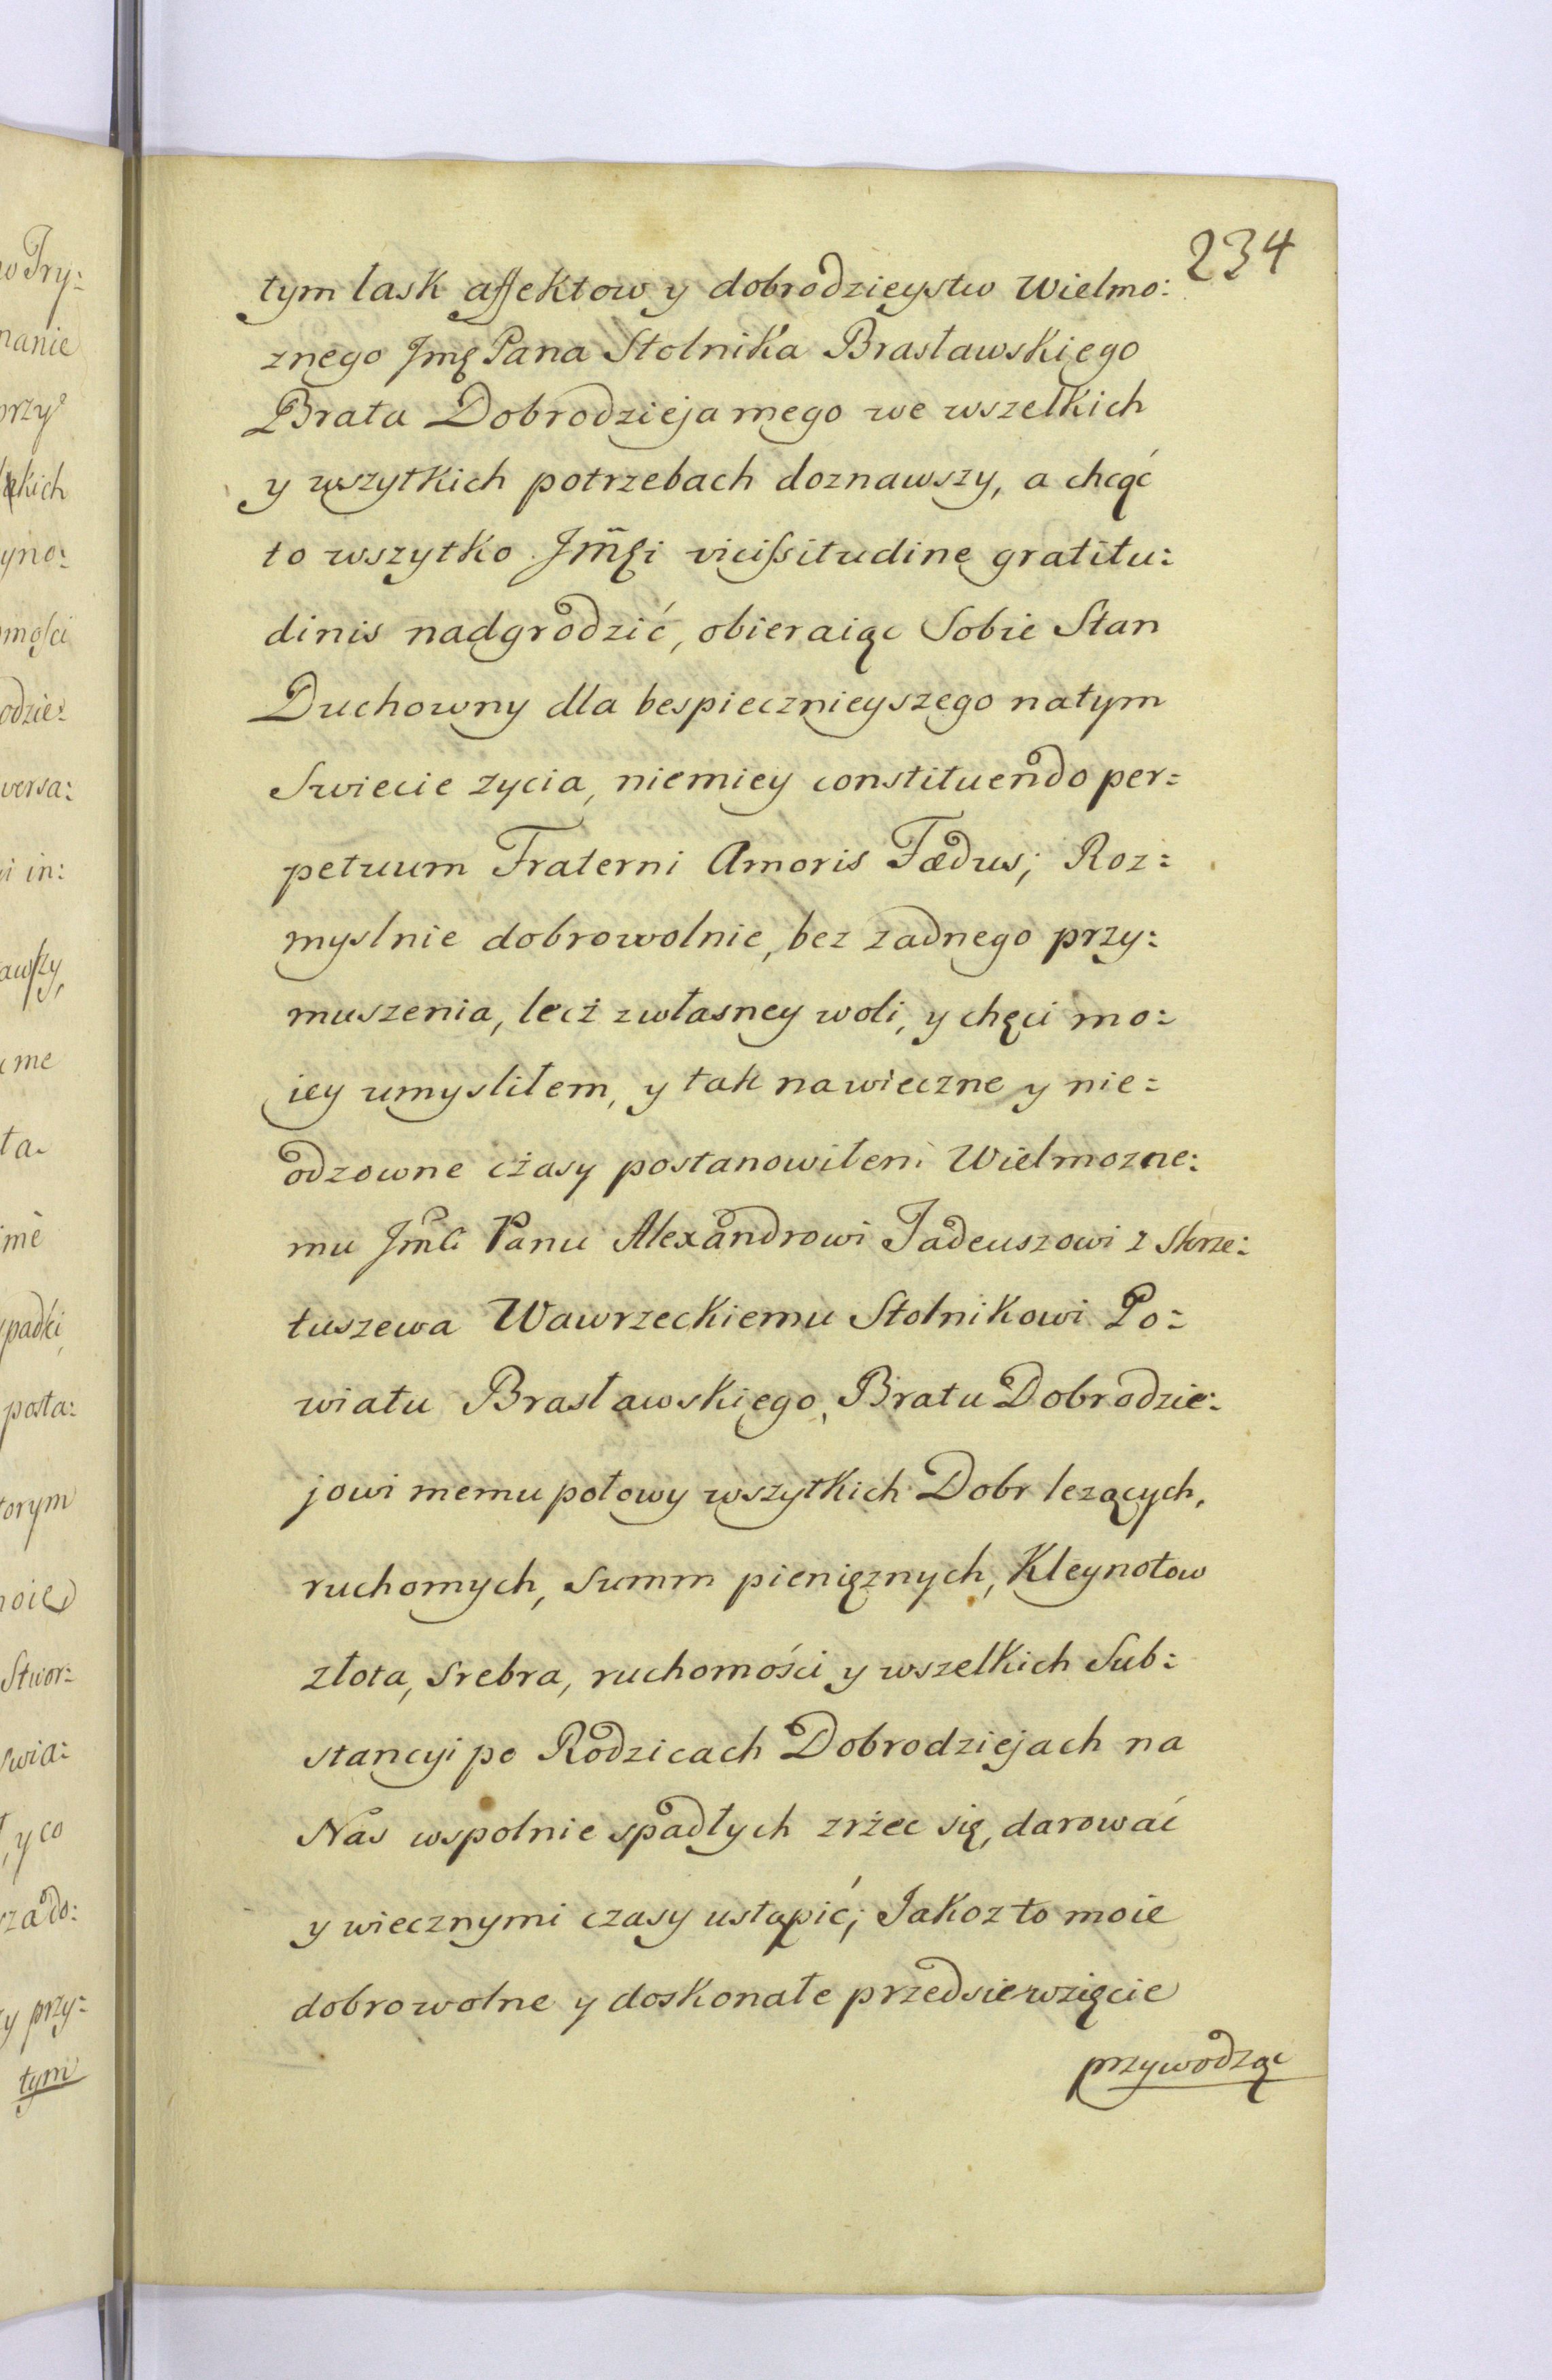 234
tym łask affektow y dobrodzieystw Wielmo:
znego Jmę Pana Stolnika Brasławskiego
Brata Dobrodzieja mego we wszelkich
y wszytkich potrzebach doznawszy, a chcąć
to wszytko Jm̃ści vicissitudine gratitu:
dinis nadgrodzić, obieraiąc Sobie Stan
Duchowny dla bespiecznieyszego natym
Swiecie zycia, niemiey constituendo per=
petuum Fraterni Amoris Fædus; Roz=
myslnie dobrowolnie, bez zadnego przy:
muszenia, lecż zwłasney woli, y chęci mo:
iey umysliłem, y tak nawieczne y nie=
odzowne cżasy postanowiłem Wielmozne:
mu Jmći Panu Alexandrowi Tadeuszowi z Skrze:
tuszewa Wawrzeckiemu Stolnikowi Po=
wiatu Brasławskiego, Bratu Dobrodzie:
jowi memu połowy wszytkich Dobr lezących,
ruchomych, Summ pienięznych, Kleynotow
złota, srebra, ruchomości y wszelkich Sub:
stancyi po Rodzicach Dobrodziejach na
Nas wspolnie spadłych zrżec się, darować
y wiecznymi czasy ustąpić; Jakoz to moie
dobrowolne y doskonałe przedsiewzięcie
przywodząc
wTry:
nanie
przy
kich
yno:
mości
odzie:
versa:
i in:
awszy,
me
ta.
imė
padki,
posta:
torym
moie
Stwor:
swia:
, y co
zado:
y przy:
tym